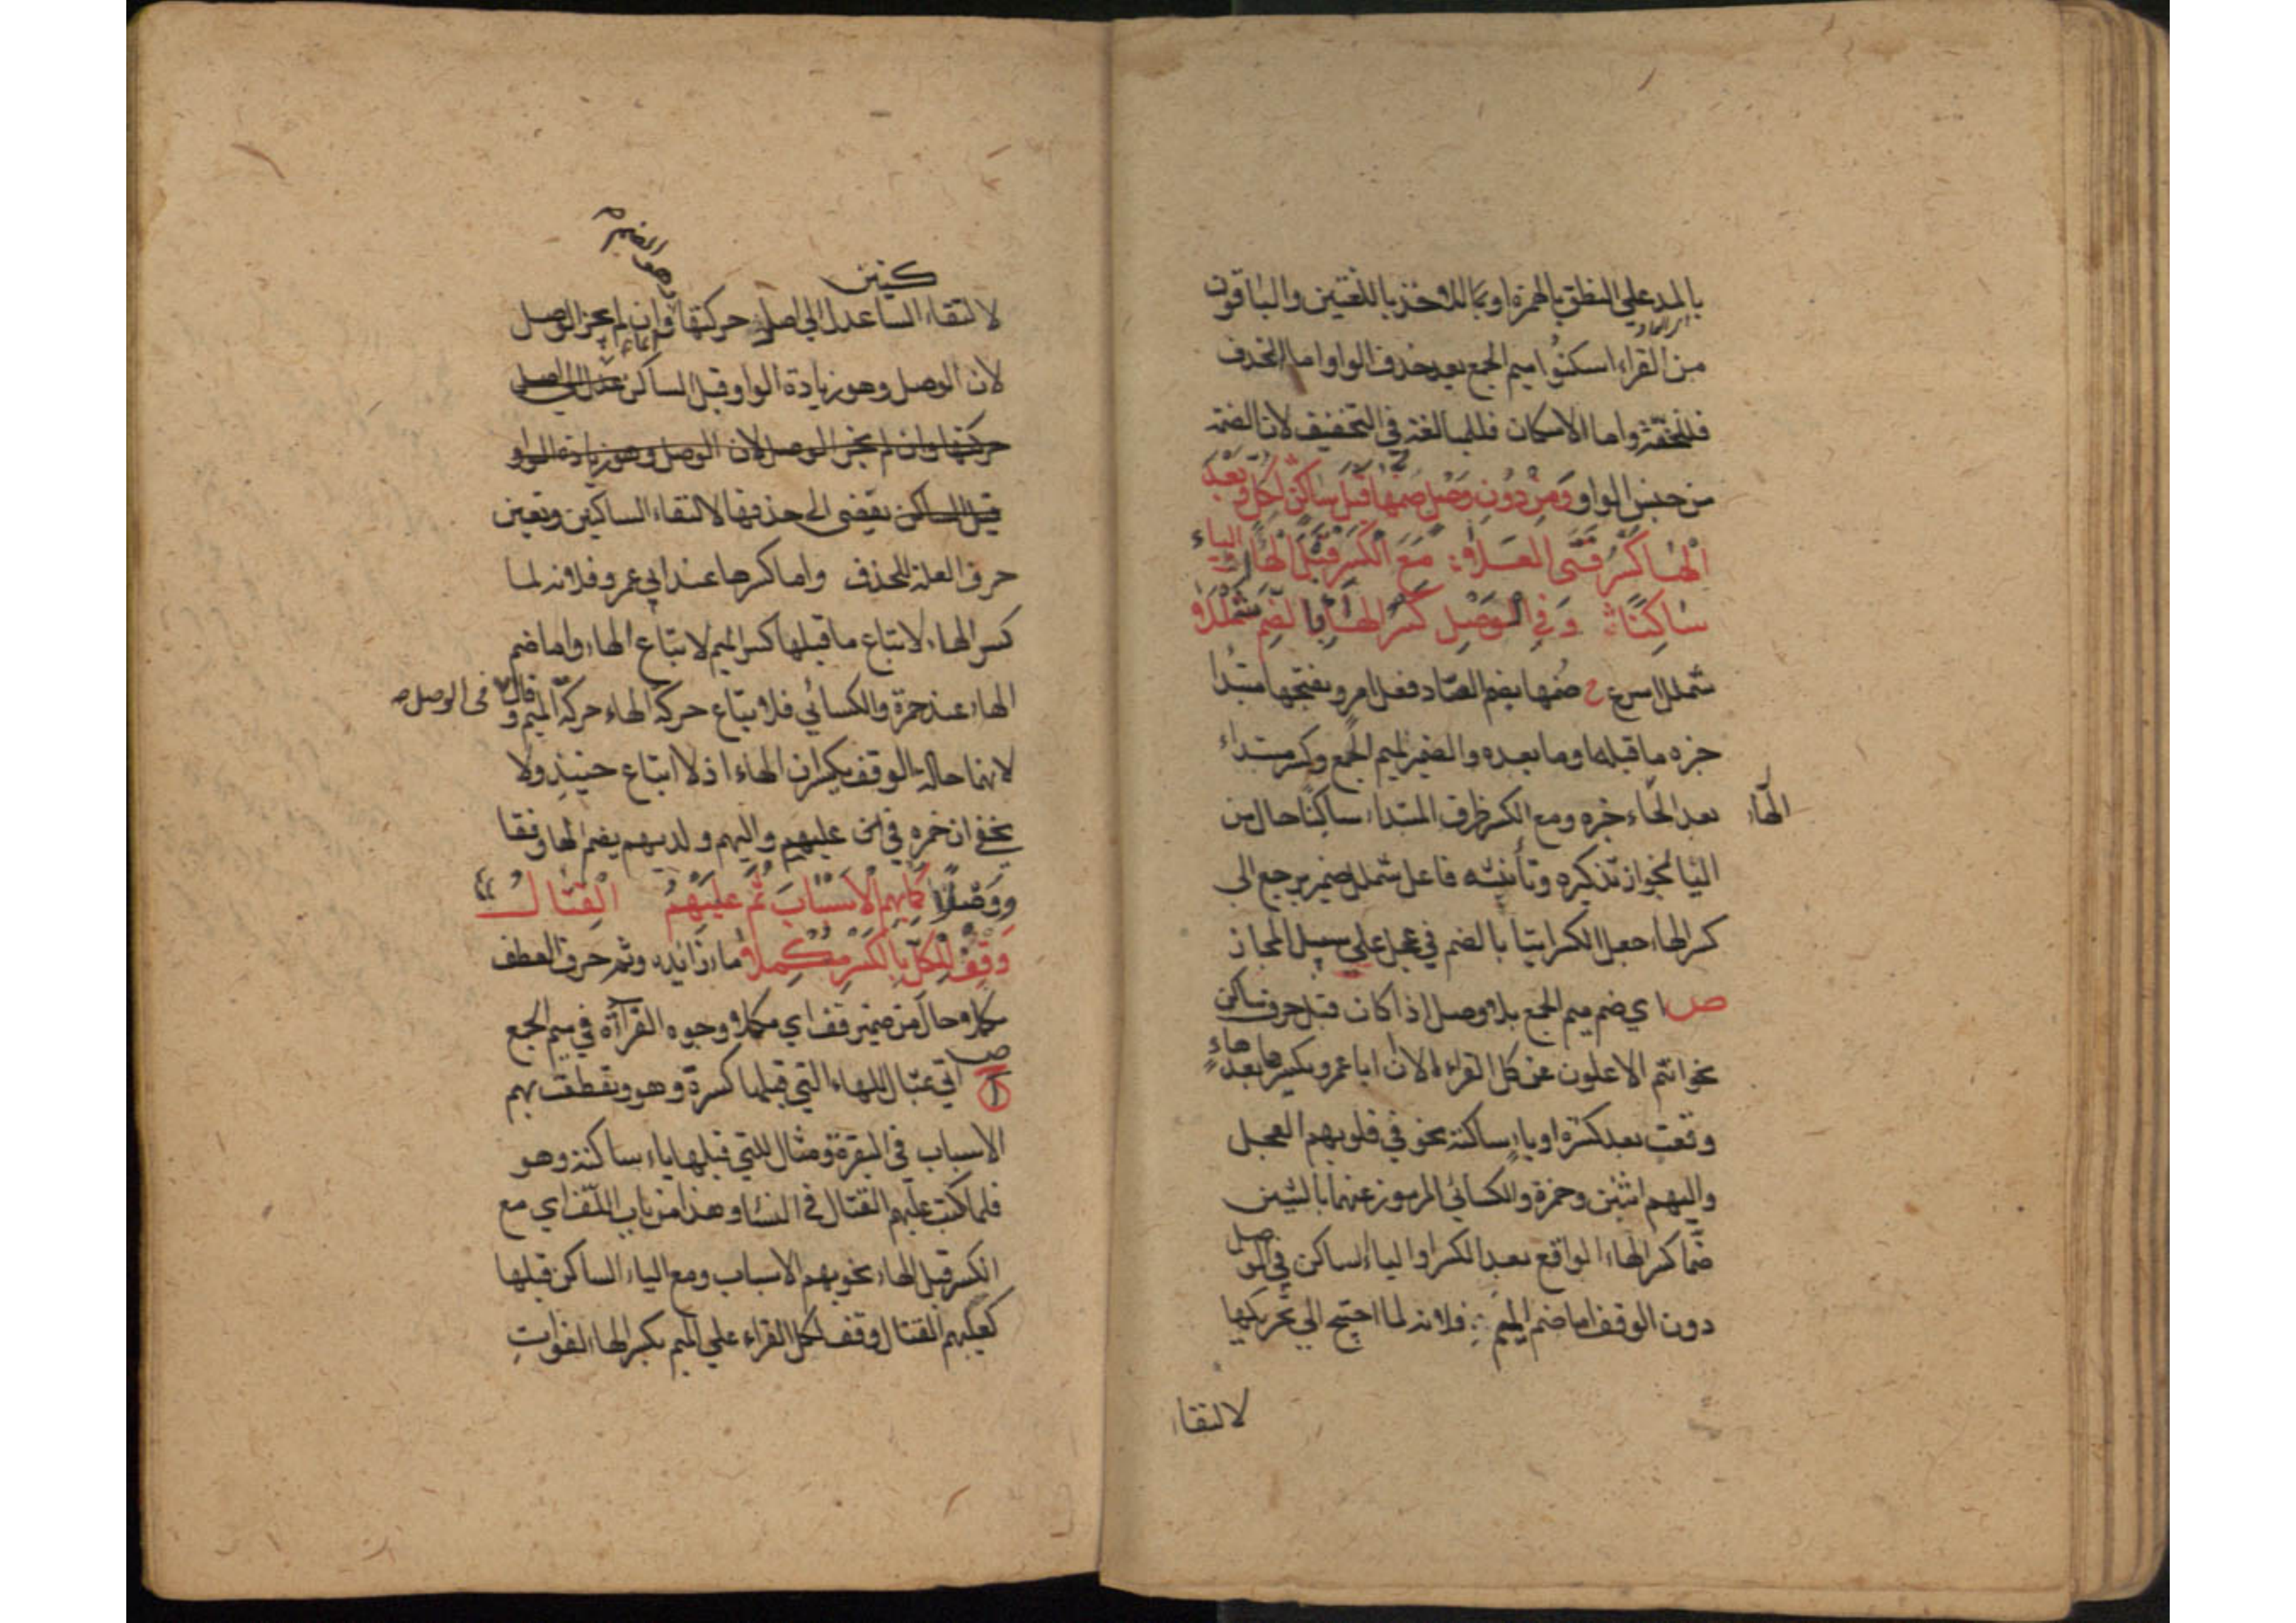 بالمد على النطق بالهمزة او بما للاخذ باللغتين والباقون
من القراء اسكنوا ميم الجمع بعد حذف الواو اما الحذف
فللخفة واما الاسكان فللمبالغة في التخفيف لان الضمة
من جنس الواو وَمِنْ دُونِ وَصْلٍ ضمها قبل ساكن لكل وبعد
الْهَاءِ كَسْرُ فَتَى الْعَلَا مَعَ الْكَسْرِ قَبْلَ الْهَا او الياء
سَاكِنًا وَفِي الْوَصْلِ كَسْرُ الْهَاءِ بِالضَّمِ شَمْلَلَا
شملل اسرع ح ضمها بضم الصاد فعل امر وبفتحها مبتدا
خبره ما قبله او ما بعده والضمير لميم الجمع وكسر مبتداء
بعد الهاء خبره ومع الكسر ظرف المبتداء ساكنا حال من
الهاء
اليا لجواز تذكيره وتأنيثه فاعل شملل ضمير يرجع الى
كسر الهاء جعل الكسر اتيا بالضم في عجل على سبيل المجاز
ص اي ضم ميم الجمع بلا وصل اذا كان قبل حرف ساكن
نحو انتم الاعلون عن كل القراء الا ان ابا عمرو يكسرها بعد هاء
وقعت بعد كسرة او ياء ساكنة نحو في قلوبهم العجل
واليهم اثنين وحمزة والكسائي المرموز عنهما بالشين
ضما كسر الهاء الواقع بعد الكسر او الياء الساكن في الوصل
دون الوقف اما ضم الميم فلانه لما احتيج الى تحريكها
لالتقا
كنين
لالتقاء السا عدل الى اصل حركتها وان لم يجز الوصل
وهو الضم
لان الوصل وهو زيادة الواو قبل الساكن عدل الى اصل
حركتها وان لم يجز الوصل لان الوصل وهو زيادة الواو
قبل الساكن يفضي الى حذفها لالتقاء الساكنين وتعين
حرف العلة للحذف واما كسرها عند ابي عمرو فلانه لما
كسر الهاء لاتباع ما قبلها كسر الميم لاتباع الهاء واما ضم
الهاء عند حمزة والكسائي فلاتباع حركة الهاء حركة الميم و قال في الوصل
لانهما حالة الوقف يكسران الهاء اذ لا اتباع حينئذ ولا
يخفى ان حمزة في عليهم واليهم ولديهم يضم الها وقفا
ووصلا كَمَا بِهِمُ الْاَسْبَابُ ثُمَّ عَلَيْهِمُ الْقِتَالُ
وَقِفْ لِلْكُلِّ بِالْكَسْرِ مُكْمِلَا ما زائده وثم حرف العطف
مكملا حال من ضمير قف اي مكملا وجوه القراءة في ميم الجمع
ص اتي بمثال للهاء التي قبلها كسرة وهو وتقطعت بهم
الاسباب في البقرة ومثال للتي قبلها ياء ساكنة وهو
فلما كتب عليهم القتال في النساء وهذا من باب اللف اي مع
الكسر قبل الهاء نحو بهم الاسباب ومع الياء الساكن قبلها
كعليهم القتال وقف لكل القراء على الميم بكسر الهاء لفوات